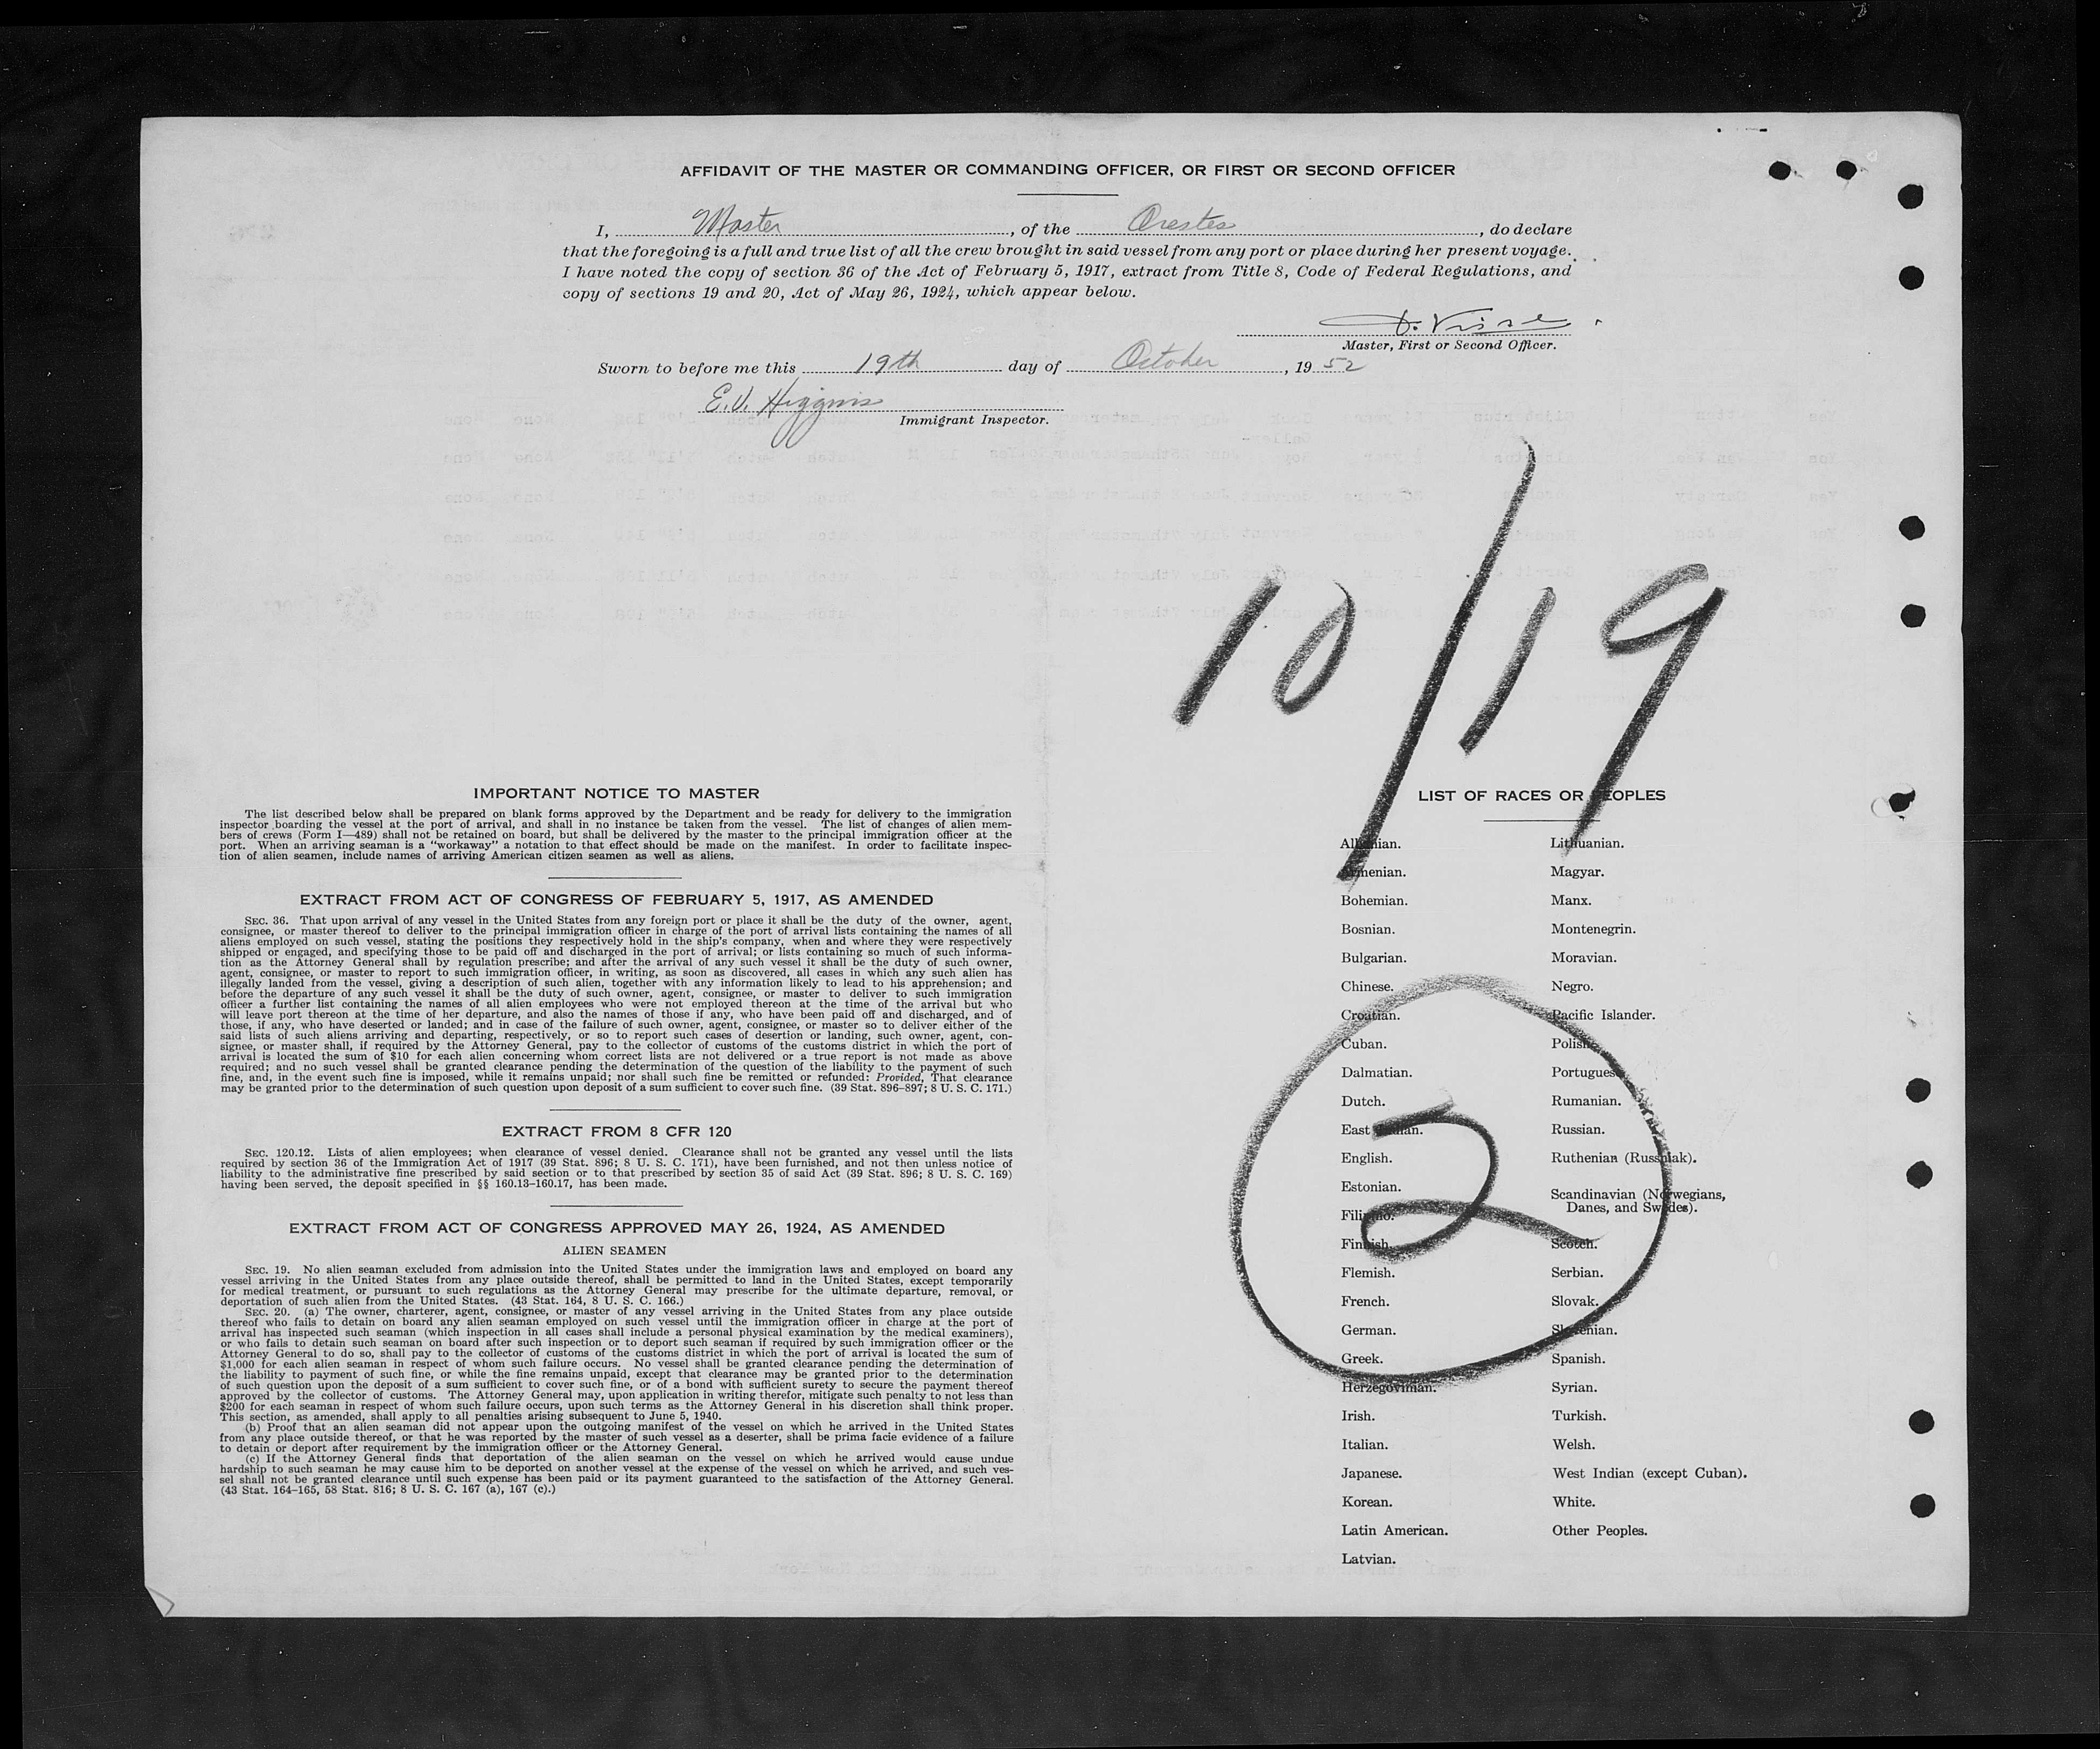 AFFIDAVIT OF THE MASTER OR COMMANDING OFFICER, OR FIRST OR SECOND OFFICER
I, Master, of the Orestes, do declare
that the foregoing is a full and true list of all the crew brought in said vessel from any port or place during her present voyage.
I have noted the copy of section 36 of the Act of February 5, 1917, extract from Title 8, Code of Federal Regulations, and
copy of sections 19 and 20, Act of May 26, 1924, which appear below.
Master, First or Second Officer.
Sworn to before me this 19th day of October, 1952
E.V. Higgins
Immigrant Inspector.
10/19
IMPORTANT NOTICE TO MASTER
The list described below shall be prepared on blank forms approved by the Department and be ready for delivery to the immigration
inspector boarding the vessel at the port of arrival, and shall in no instance be taken from the vessel. The list of changes of alien mem-
bers of crews (Form I—489) shall not be retained on board, but shall be delivered by the master to the principal immigration officer at the
port. When an arriving seaman is a "workaway" a notation to that effect should be made on the manifest. In order to facilitate inspec-
tion of alien seamen, include names of arriving American citizen seamen as well as aliens.
EXTRACT FROM ACT OF CONGRESS OF FEBRUARY 5, 1917, AS AMENDED
SEC. 36. That upon arrival of any vessel in the United States from any foreign port or place it shall be the duty of the owner, agent,
consignee, or master thereof to deliver to the principal immigration officer in charge of the port of arrival lists containing the names of all
aliens employed on such vessel, stating the positions they respectively hold in the ship's company, when and where they were respectively
shipped or engaged, and specifying those to be paid off and discharged in the port of arrival; or lists containing so much of such informa-
tion as the Attorney General shall by regulation prescribe; and after the arrival of any such vessel it shall be the duty of such owner,
agent, consignee, or master to report to such immigration officer, in writing, as soon as discovered, all cases in which any such alien has
illegally landed from the vessel, giving a description of such alien, together with any information likely to lead to his apprehension; and
before the departure of any such vessel it shall be the duty of such owner, agent, consignee, or master to deliver to such immigration
officer a further list containing the names of all alien employees who were not employed thereon at the time of the arrival but who
will leave port thereon at the time of her departure, and also the names of those if any, who have been paid off and discharged, and of
those, if any, who have deserted or landed; and in case of the failure of such owner, agent, consignee, or master so to deliver either of the
said lists of such aliens arriving and departing, respectively, or so to report such cases of desertion or landing, such owner, agent, con-
signee, or master shall, if required by the Attorney General, pay to the collector of customs of the customs district in which the port of
arrival is located the sum of $10 for each alien concerning whom correct lists are not delivered or a true report is not made as above
required; and no such vessel shall be granted clearance pending the determination of the question of the liability to the payment of such
fine, and, in the event such fine is imposed, while it remains unpaid; nor shall such fine be remitted or refunded: Provided, That clearance
may be granted prior to the determination of such question upon deposit of a sum sufficient to cover such fine. (39 Stat. 896–897; 8 U. S. C. 171.)
EXTRACT FROM 8 CFR 120
SEC. 120.12. Lists of alien employees; when clearance of vessel denied. Clearance shall not be granted any vessel until the lists
required by section 36 of the Immigration Act of 1917 (39 Stat. 896; 8 U. S. C. 171), have been furnished, and not then unless notice of
liability to the administrative fine prescribed by said section or to that prescribed by section 35 of said Act (39 Stat. 896; 8 U. S. C. 169)
having been served, the deposit specified in §§ 160.13–160.17, has been made.
EXTRACT FROM ACT OF CONGRESS APPROVED MAY 26, 1924, AS AMENDED
ALIEN SEAMEN
SEC. 19. No alien seaman excluded from admission into the United States under the immigration laws and employed on board any
vessel arriving in the United States from any place outside thereof, shall be permitted to land in the United States, except temporarily
for medical treatment, or pursuant to such regulations as the Attorney General may prescribe for the ultimate departure, removal, or
deportation of such alien from the United States. (43 Stat. 164, 8 U. S. C. 166.)
SEC. 20. (a) The owner, charterer, agent, consignee, or master of any vessel arriving in the United States from any place outside
thereof who fails to detain on board any alien seaman employed on such vessel until the immigration officer in charge at the port of
arrival has inspected such seaman (which inspection in all cases shall include a personal physical examination by the medical examiners),
or who fails to detain such seaman on board after such inspection or to deport such seaman if required by such immigration officer or the
Attorney General to do so, shall pay to the collector of customs of the customs district in which the port of arrival is located the sum of
$1,000 for each alien seaman in respect of whom such failure occurs. No vessel shall be granted clearance pending the determination of
the liability to payment of such fine, or while the fine remains unpaid, except that clearance may be granted prior to the determination
of such question upon the deposit of a sum sufficient to cover such fine, or of a bond with sufficient surety to secure the payment thereof
approved by the collector of customs. The Attorney General may, upon application in writing therefor, mitigate such penalty to not less than
$200 for each seaman in respect of whom such failure occurs, upon such terms as the Attorney General in his discretion shall think proper.
This section, as amended, shall apply to all penalties arising subsequent to June 5, 1940.
(b) Proof that an alien seaman did not appear upon the outgoing manifest of the vessel on which he arrived in the United States
from any place outside thereof, or that he was reported by the master of such vessel as a deserter, shall be prima facie evidence of a failure
to detain or deport after requirement by the immigration officer or the Attorney General.
(c) If the Attorney General finds that deportation of the alien seaman on the vessel on which he arrived would cause undue
hardship to such seaman he may cause him to be deported on another vessel at the expense of the vessel on which he arrived, and such ves-
sel shall not be granted clearance until such expense has been paid or its payment guaranteed to the satisfaction of the Attorney General.
(43 Stat. 164–165, 58 Stat. 816; 8 U. S. C. 167 (a), 167 (c).)
LIST OF RACES OR PEOPLES
Albanian.
Armenian.
Bohemian.
Bosnian.
Bulgarian.
Chinese.
Croatian.
Cuban.
Dalmatian.
Dutch.
East Indian.
English.
Estonian.
Filipino.
Finnish.
Flemish.
French.
German.
Greek.
Herzegovinian.
Irish.
Italian.
Japanese.
Korean.
Latin American.
Latvian.
Lithuanian.
Magyar.
Manx.
Montenegrin.
Moravian.
Negro.
Pacific Islander.
Polish.
Portuguese.
Rumanian.
Russian.
Ruthenian (Russniak).
Scandinavian (Norwegians,
Danes, and Swedes).
Scotch.
Serbian.
Slovak.
Slovenian.
Spanish.
Syrian.
Turkish.
Welsh.
West Indian (except Cuban).
White.
Other Peoples.
2